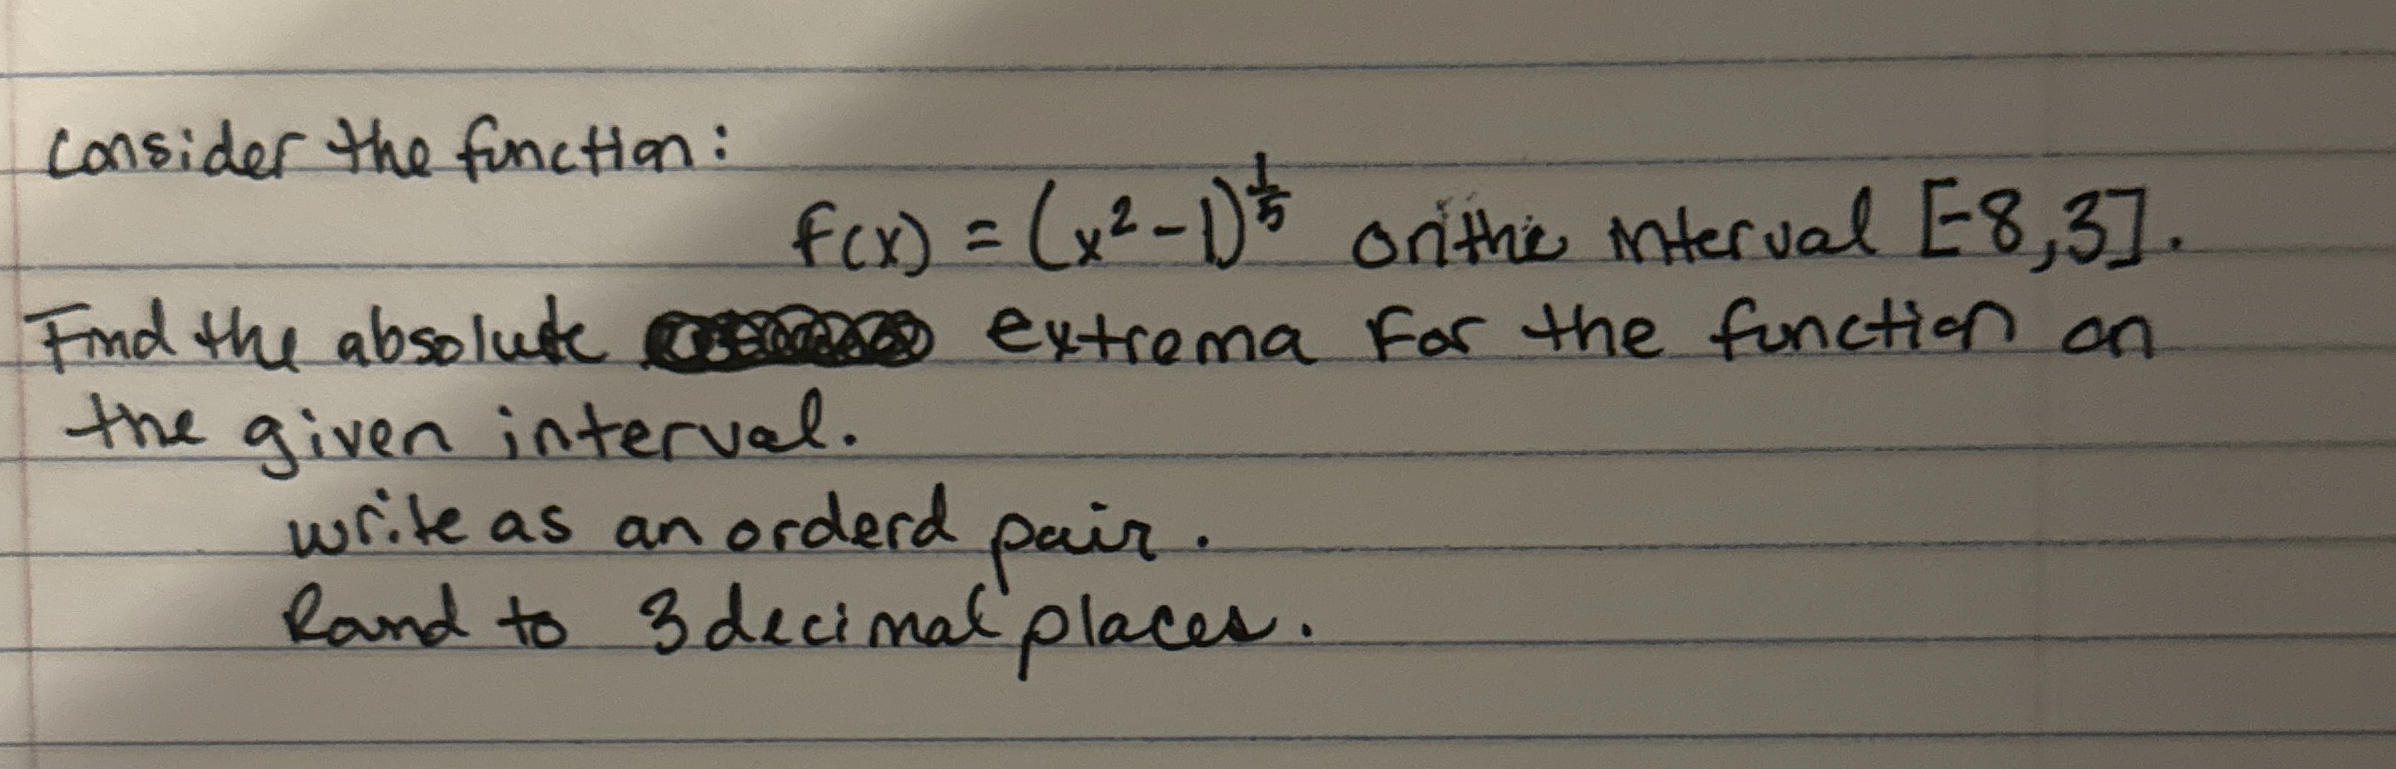 consider the function:
f(x) = (x² - 1)^(1/5) on the interval [-8,3].
Find the absolute extrema for the function on
the given interval.
write as an orderd pair.
Round to 3 decimal places.